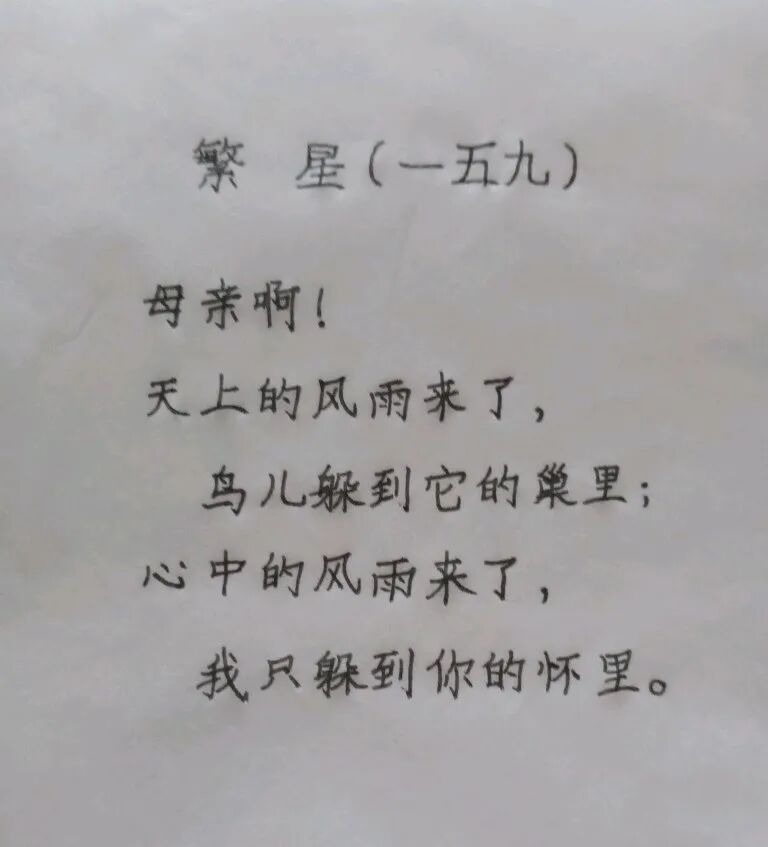 繁 星（一五九）
母亲啊！
天上的风雨来了，
鸟儿躲到它的巢里；
心中的风雨来了，
我只躲到你的怀里。